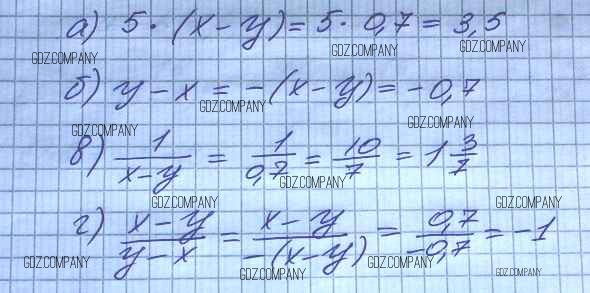 а) 5 · (x - y) = 5 · 0,7 = 3,5
GDZ.COMPANY GDZ.COMPANY GDZ.COMPANY
б) y - x = -(x - y) = -0,7
GDZ.COMPANY
GDZ.COMPANY GDZ.COMPANY
в) 1/(x - y) = 1/0,7 = 10/7 = 1 3/7
GDZ.COMPANY
GDZ.COMPANY GDZ.COMPANY
г) (x - y)/(y - x) = (x - y)/(-(x - y)) = 0,7/(-0,7) = -1
GDZ.COMPANY GDZ.COMPANY GDZ.COMPANY GDZ.COMPANY